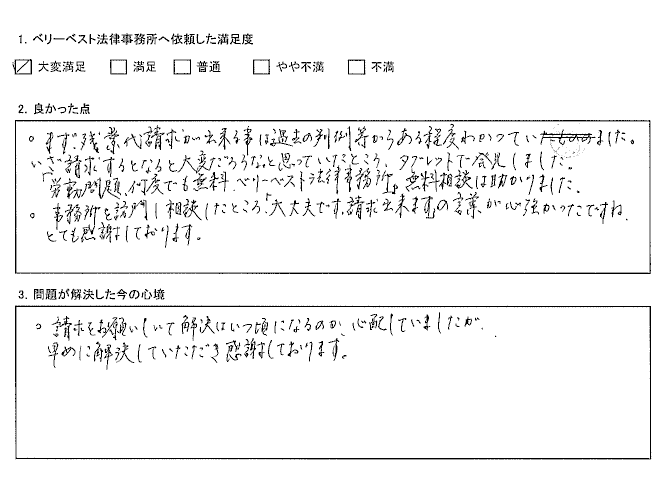 1. ベリーベスト法律事務所へ依頼した満足度
大変満足 満足 普通 やや不満 不満
2. 良かった点
。まず、残業代請求が出来る事は過去の判例等からある程度わかっていたものの ました。
いざ請求するとなると大変だろうなと思っていたところ、タブレットで発見しました。
「労働問題、何度でも無料、ベリーベスト法律事務所」。無料相談は助かりました。
。事務所を訪問し相談したところ、「大丈夫です。請求出来ます」の言葉が心強かったですね
とても感謝しております。
3. 問題が解決した今の心境
。請求をお願いしいて解決はいつ頃になるのか、心配していましたが、
早めに解決していただき感謝しております。